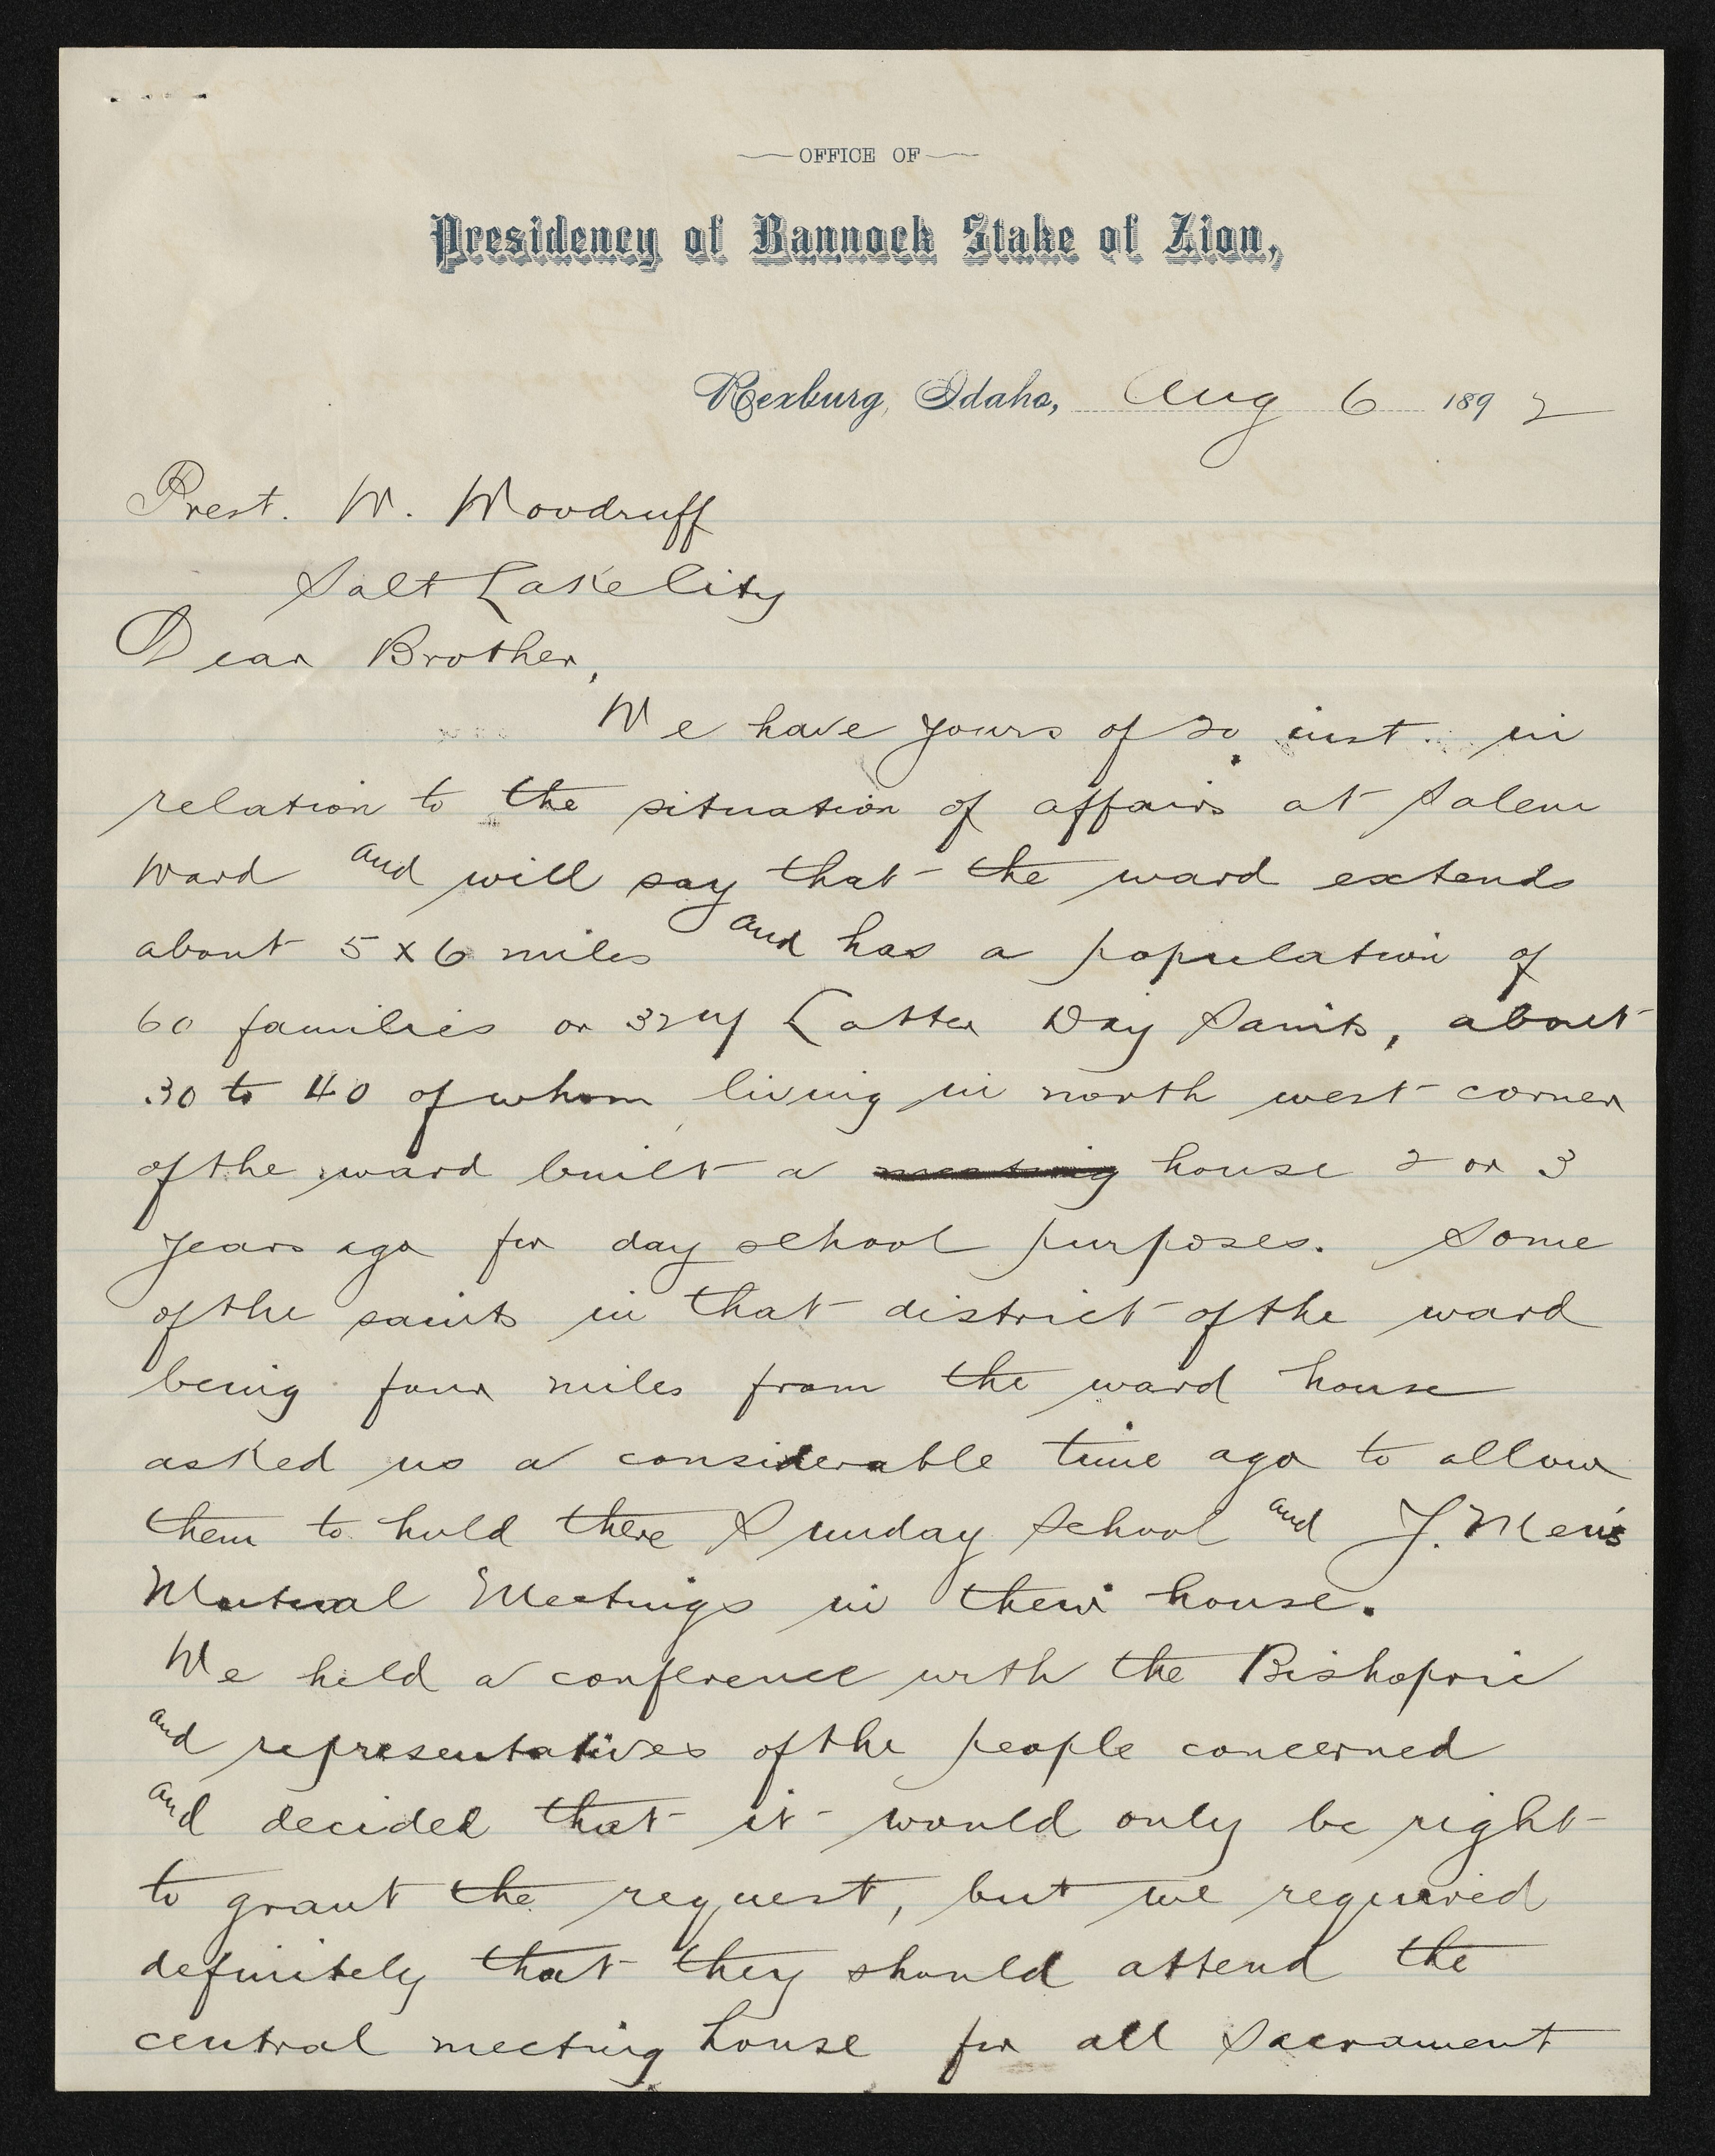 OFFICE OF
Presidency of Bannock Stake of Zion,
Rexburg, Idaho, Aug 6 1892
Prest. W. Woodruff
Salt Lake City
Dear Brother,
We have yours of 20 inst. in
relation to the situation of affairs at Salem
Ward and will say that the ward extends
about 5 x 6 miles and has a population of
60 families or 324 Latter Day Saints, about
30 to 40 of whom living in north west corner
of the ward built a meeting house 2 or 3
years ago for day school purposes. Some
of the saints in that district of the ward
being four miles from the ward house
asked us a considerable time ago to allow
them to hold there Sunday School and Y. Men's
Mutual Meetings in their house.
We held a conference with the Bishopric
and representatives of the people concerned
and decided that it would only be right
to grant the request, but we required
definitely that they should attend the
central meeting house for all Sacrament